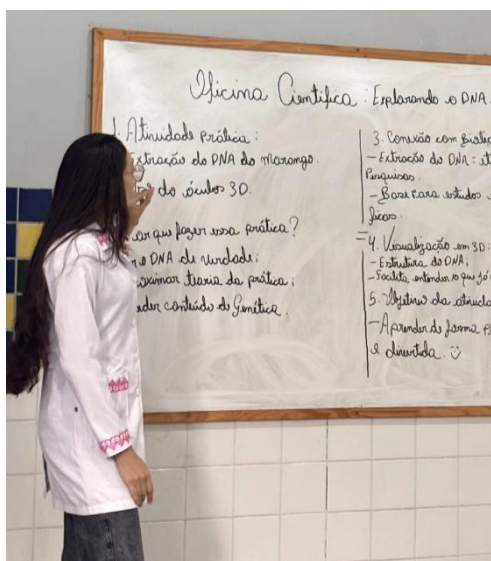 Oficina Científica: Explorando o DNA
1. Atividade prática:
Extração do DNA do morango.
do óculos 3D.
que fazer essa prática?
o DNA de verdade;
teoria da prática;
conteúdo de Genética.
3. Conexão com
- Extração do DNA:
Pesquisas.
- Base para estudos
4. Visualização em 3D:
- Estrutura do DNA;
- Facilita entender o que já
5. Objetivo da
- Aprender de forma
e divertida. ☺